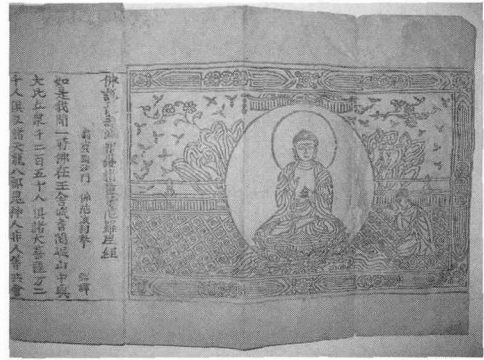 佛說
罽賓國沙門 佛陀波利奉 詔譯
如是我聞一時佛在王舍城耆闍崛山中與
大比丘眾千二百五十人俱諸大菩薩万二
千人俱及諸天龍八部鬼神人非人等共會